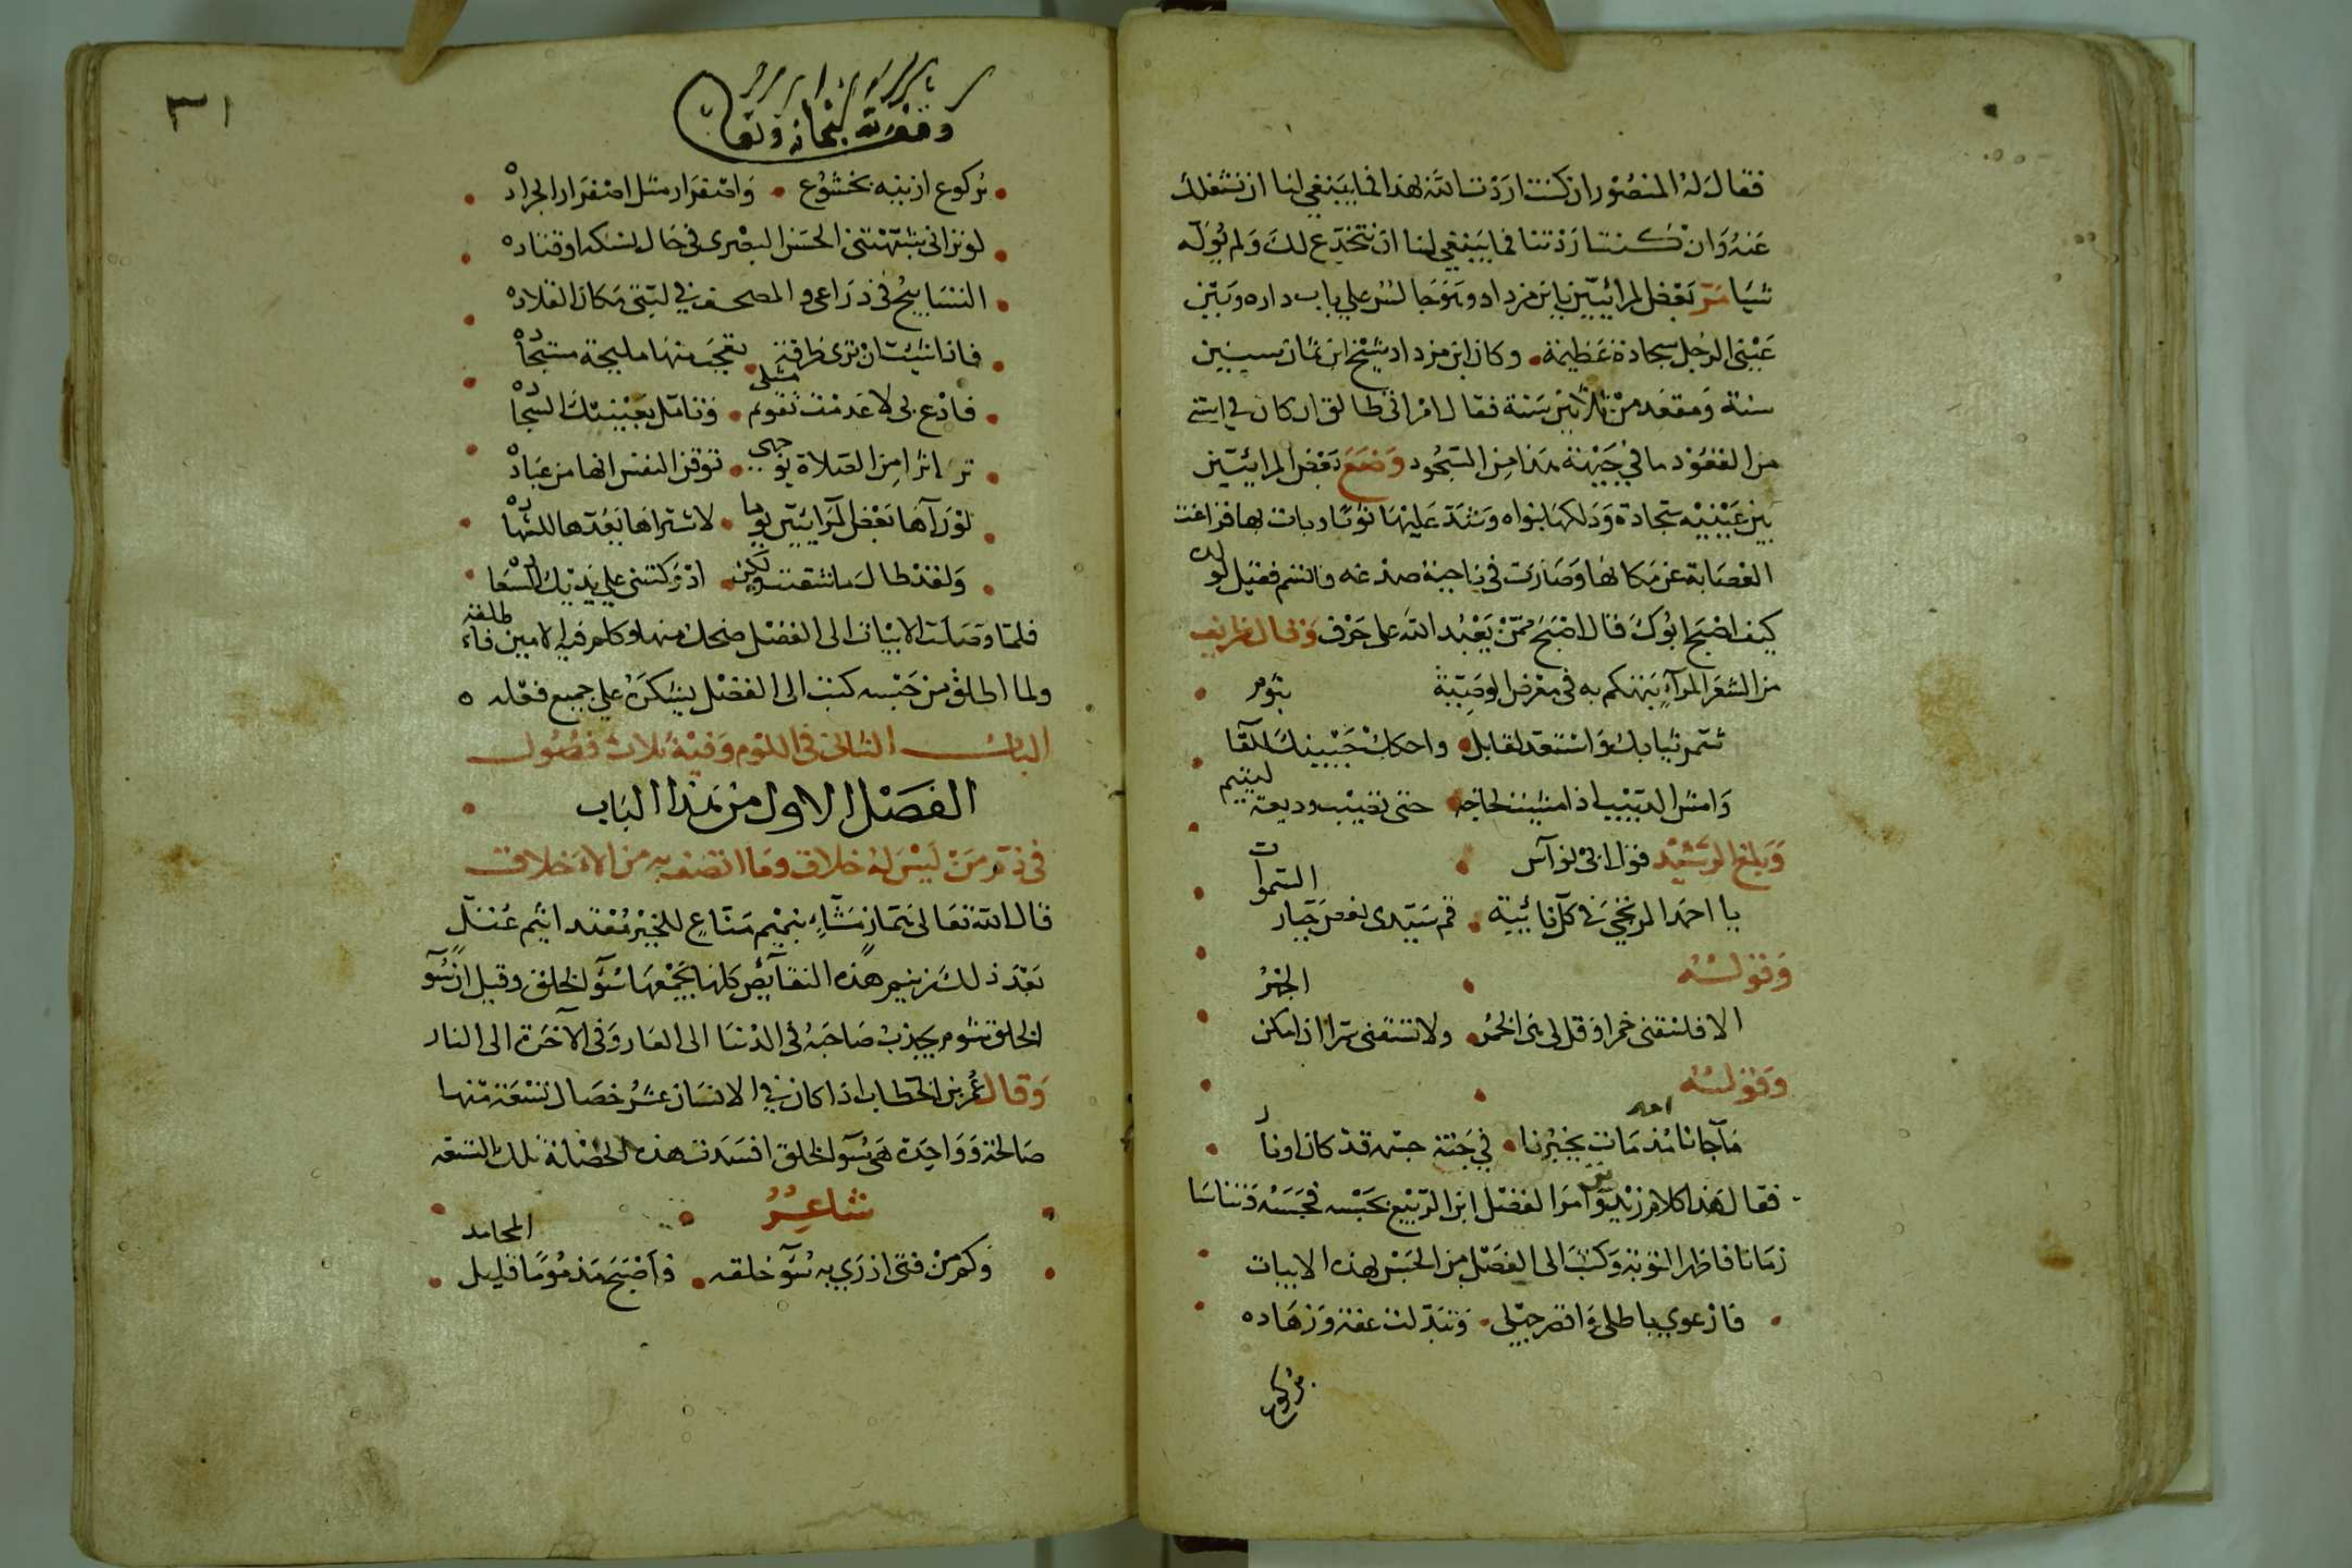 فقال له المنصور ان كنت اردت الله بهذا فما ينبغي لنا ان نشغلك
عنه وان كنت اردتنا فما ينبغي لنا ان ننخدع لك ولم يوله
شيا مر بعض المرائيين بابن مزداد وهو جالس علي باب داره وبين
عيني الرجل سجادة عظيمة وكان ابن مزداد شيخ ابن ثمانين
سنة ومقعد من ثلاثين سنة فقال امراتي طالق ان كان في استي
من القعود ما في جبهة هذا من السجود وضع بعض المرائيين
بين عينيه سجادة ودلكها بنواه وشد عليها ثوما وبات بها فزاغت
العصابة عن مكانها وصارت في ناحية صدغه فانتم فقيل لولده
كيف اصبح ابوك قال اصبح ممن يعبد الله على حرف وقال ظريف
من الشعرا لمرآء يتهكم به في معرض الوصية
شمر ثيابك واستعد لقابل واحكك جبينك للقآ بثوم
وامش الدبيب اذا مشيت لحاجة حتى تصيب وديعة ليتيم
وبلغ الرشيد قول ابي نواس
يا احمد المرتجي في كل نائبة قم سيدي نعص جبار السموات
وقولـــه
الا فاسقني خمرا وقل لي هي الخمر ولا تسقني سرا اذا امكن الجهر
وقولــه
ما جآنا احد مذ مات يخبرنا في جنة حبه قد كان او نار
فقال هذا كلام زنديق وامر الفضل ابن الربيع بحبسه فحبسه وتناسا
زمانا فاظهر التوبة وكتب الى الفضل من الحبس بهذه الابيات
فارعوي باطلي واقصر حبلي وتبدلت عفة وزهاده
بركوع
٣١
وقف كتبخانه
بركوع ازينه بخشوع واصفرار مثل اصفرار الجراده
لو تراني شبهتني الحسن البصري في حال نسكه او قتاده
التسابيح في ذراعي والمصحف في لبتي مكان القلاده
فاذا شيت ان تري طرفة تعجب منها مليحة مستجاده
فادع بي لا عدمت تقويم مثلي وتامل بعينيك السجاده
تر اثرا من الصلاة بوجهي توقن النفس انها من عباده
لو رآها بعض المرايين يوما لاشتراها يعدها للشهاده
ولقد طال ما شقيت ولكن ادركتني علي يديك السعاده
فلما وصلت الابيات الى الفضل ضحك منها وكلم فيه الامين فاطلقه
ولما اطلق من حبسه كتب الى الفضل يشكره علي جميع فعله ه
البابـــ الثاني في اللوم وفيه ثلاث فصول
الفصل الاول من هذا الباب
في ذم من ليس له خلاق وما اتصف به من الاخلاق
قال الله تعالى هماز مشاء بنميم مناع للخير معتد اثيم عتل
بعد ذلك زنيم هذه النقآيص كلها يجمعها سوء الخلق وقيل ان سوء
الخلق شوم يجذب صاحبه في الدنيا الى العار وفي الآخرة الى النار
وقال عمر بن الخطاب اذا كان في الانسان عشر خصال تسعة منها
صالحة وواحدة هي سوء الخلق افسدت هذه الخصلة تلك التسعه
شاعر
وكم من فتى ازري به سوء خلقه فاصبح مذموما قليل المحامد